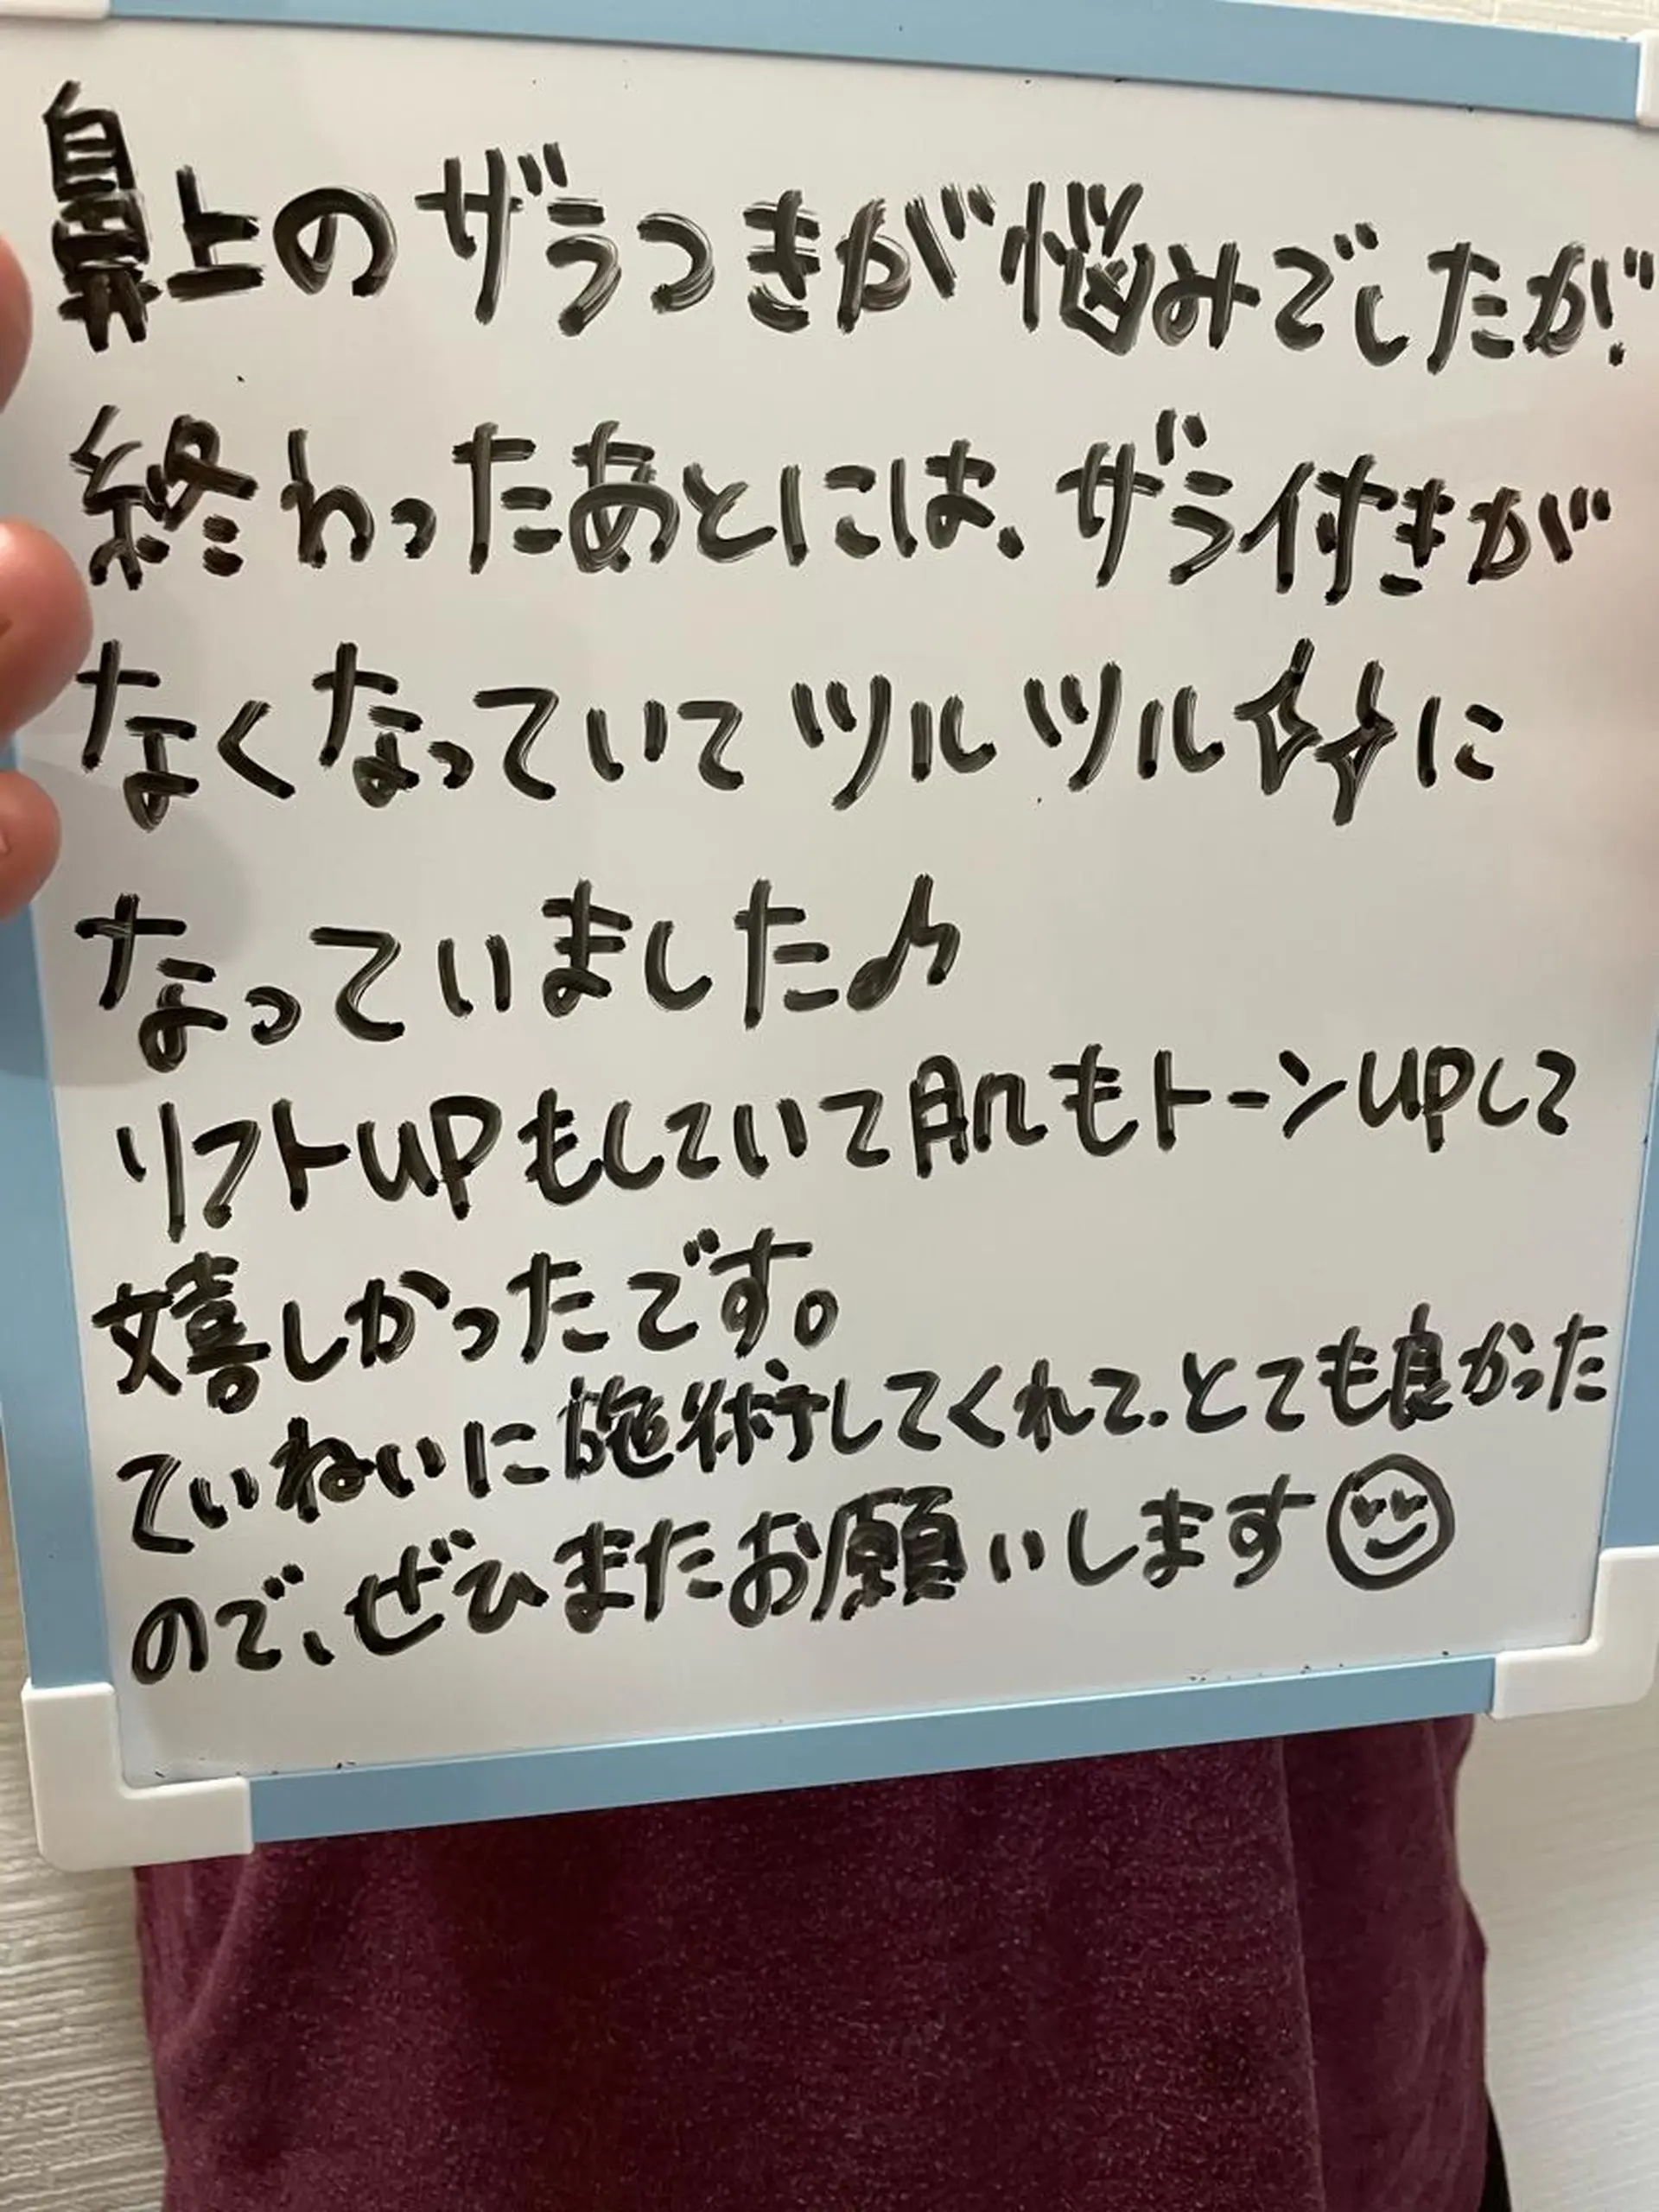 鼻上のザラつきが悩みでしたが、
終わったあとには、ザラ付きが
なくなっていてツルツル✨に
なっていました♪
リフトupもしていて肌もトーンupして
嬉しかったです。
ていねいに施術してくれて、とても良かった
ので、ぜひまたお願いします